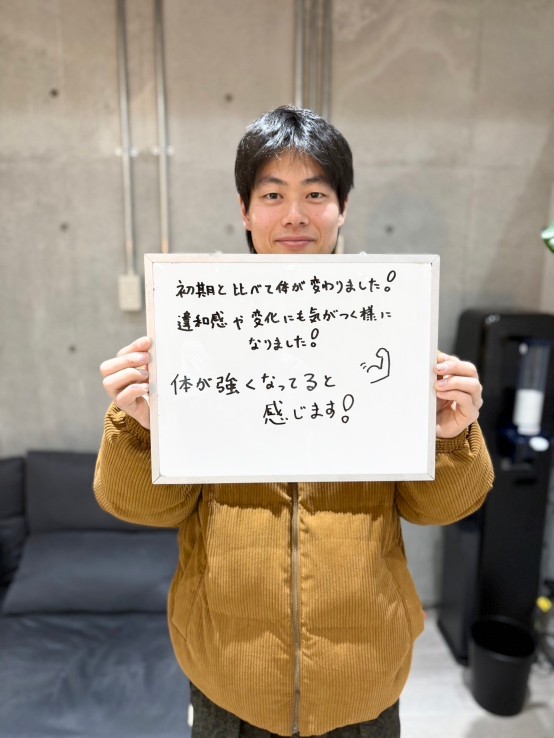 初期と比べて体が変わりました!
違和感や変化にも気がつく様に
なりました!
体が強くなってると
感じます!